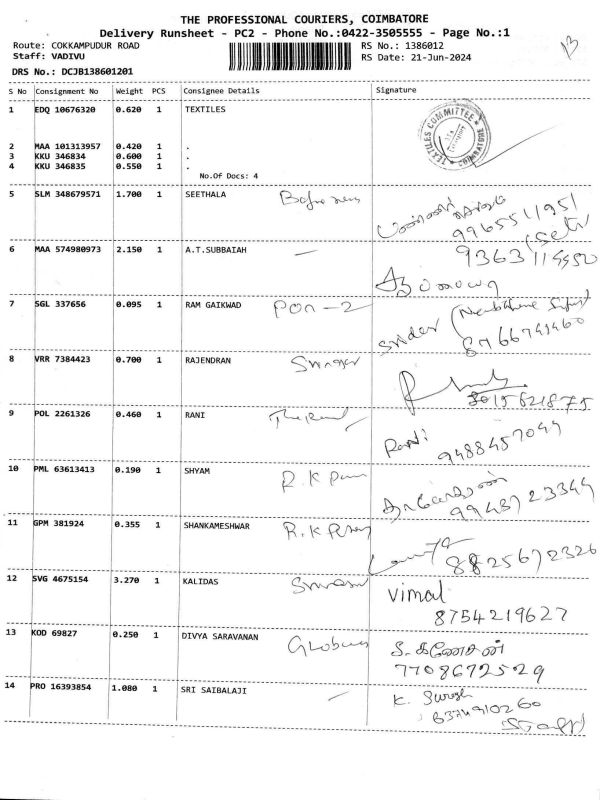 THE PROFESSIONAL COURIERS, COIMBATORE
Delivery Runsheet - PC2 - Phone No.:0422-3505555 - Page No.:1
Route: COKKAMPUDUR ROAD RS No.: 1386012
Staff: VADIVU RS Date: 21-Jun-2024
DRS No.: DCJB138601201
S No Consignment No Weight PCS Consignee Details Signature
1 EDQ 10676320 0.620 1 TEXTILES
TEXTILES COMMITTEE
COIMBATORE
2 MAA 101313957 0.420 1 .
3 KKU 346834 0.600 1 .
4 KKU 346835 0.550 1 .
No.Of Docs: 4
5 SLM 348679571 1.700 1 SEETHALA
9965511951
6 MAA 574980973 2.150 1 A.T.SUBBAIAH —
7 SGL 337656 0.095 1 RAM GAIKWAD PON-2 Sridar
8766741460
8 VRR 7384423 0.700 1 RAJENDRAN
8015621875
9 POL 2261326 0.460 1 RANI Rani
9488457049
10 PML 63613413 0.190 1 SHYAM R.K
9943723349
11 GPM 381924 0.355 1 SHANKAMESHWAR R.K
8825672326
12 SVG 4675154 3.270 1 KALIDAS vimal
8754219627
13 KOD 69827 0.250 1 DIVYA SARAVANAN Globus க.கணேசன்
7708672529
14 PRO 16393854 1.080 1 SRI SAIBALAJI — K. Suresh
6374910260